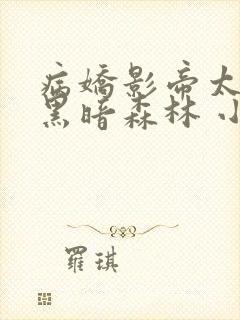 病嬌影帝太
黑暗森林 小
羅琪